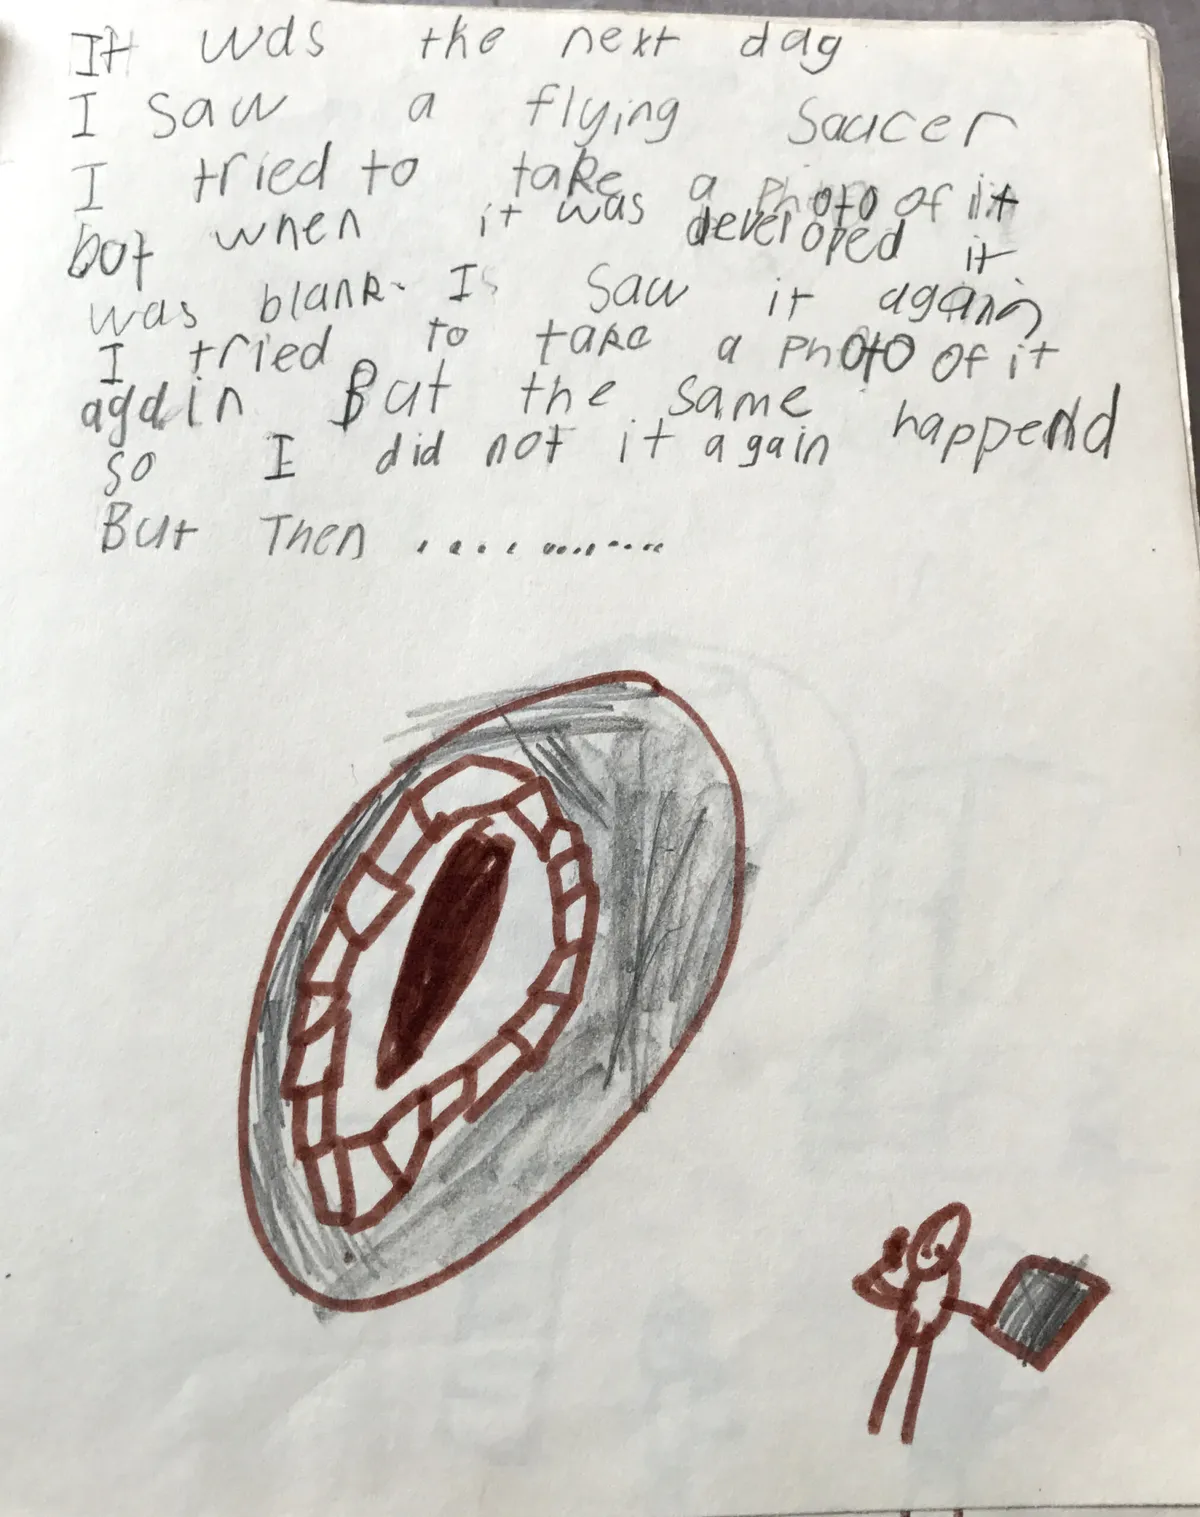 It was the next day
I saw a flying saucer
I tried to take a photo of it
bot when it was developed it
was blank. I saw it again
I tried to take a photo of it
again But the same happend
so I did not it again
But Then ............